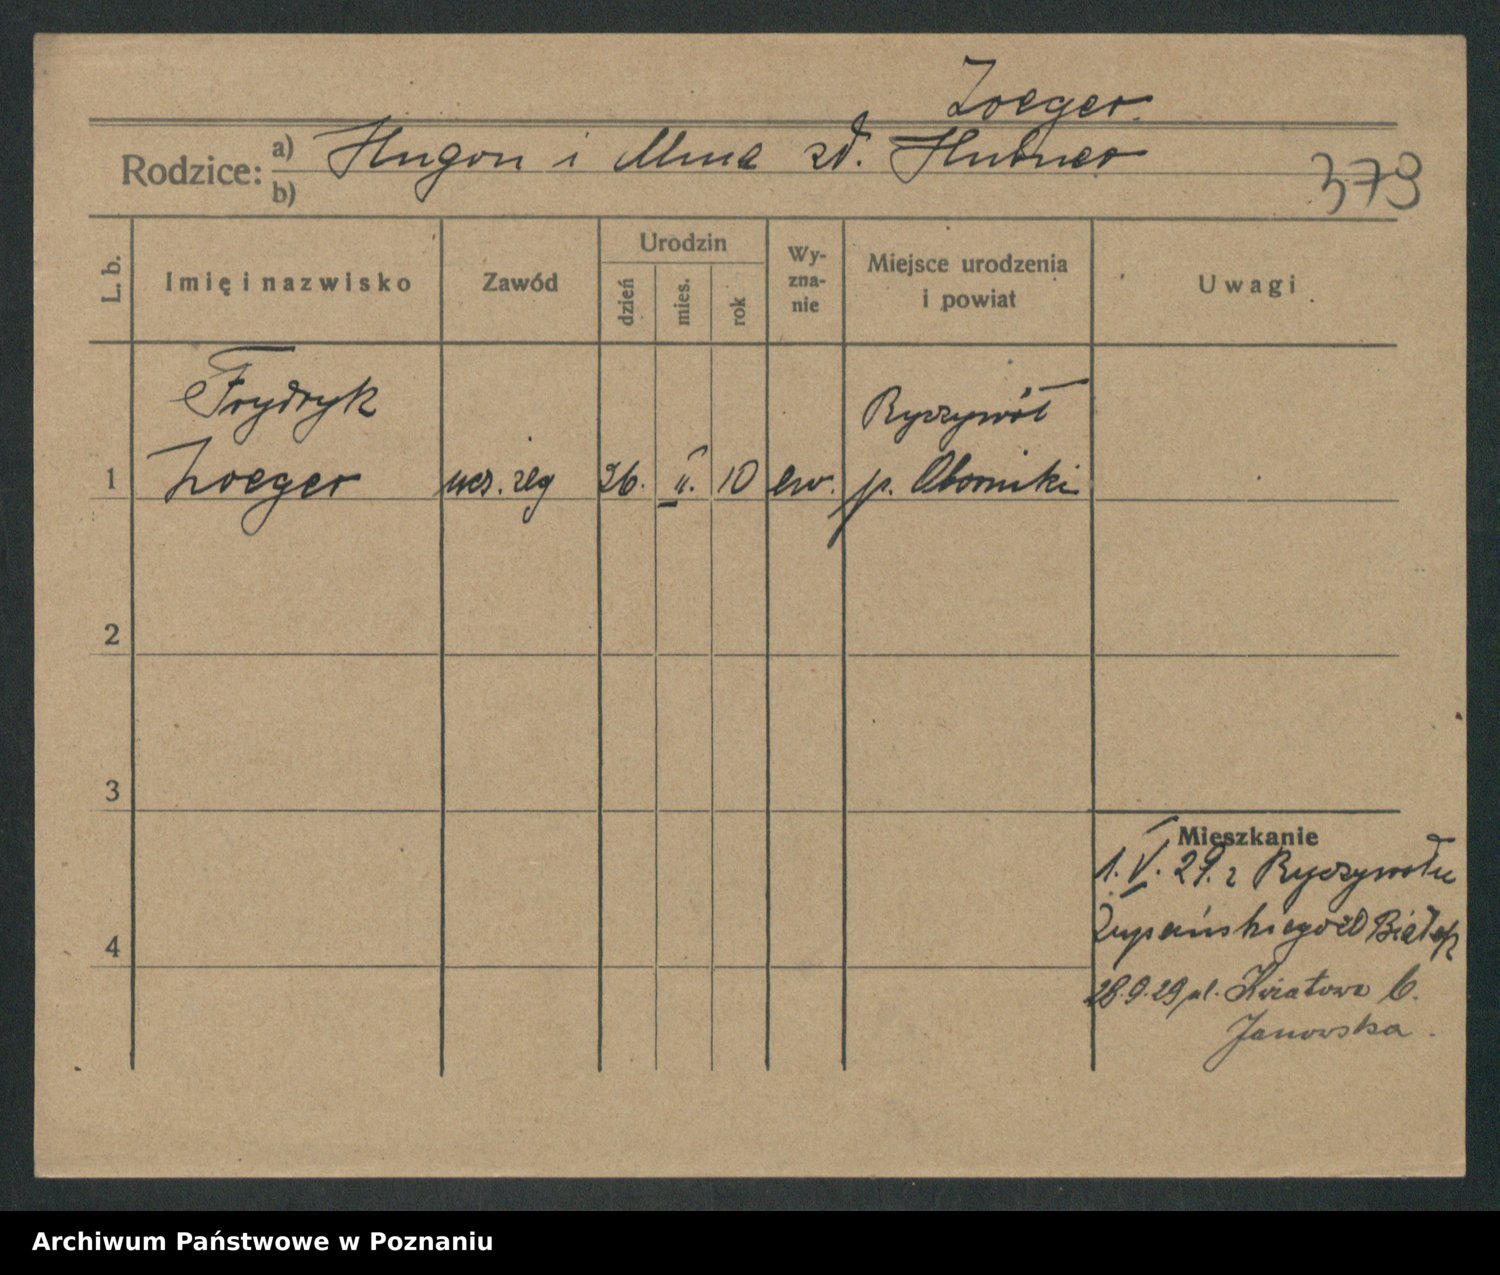 Zoeger.
Rodzice: a) Hugon i Mina zd. Hubner
b)
379
L. b.
Imię i nazwisko
Zawód
Urodzin
dzień
mies.
rok
Wy-
zna-
nie
Miejsce urodzenia
i powiat
Uwagi
Frydryk
Ryczywół
1 Zoeger ucz. zeg 26. II. 10 ew. p. Oborniki
2
3
4
Mieszkanie
1.V.29. z Ryczywołu
Żupańskiego
28.9.29 ul. Kwiatowa 6.
Janowska.
Archiwum Państwowe w Poznaniu